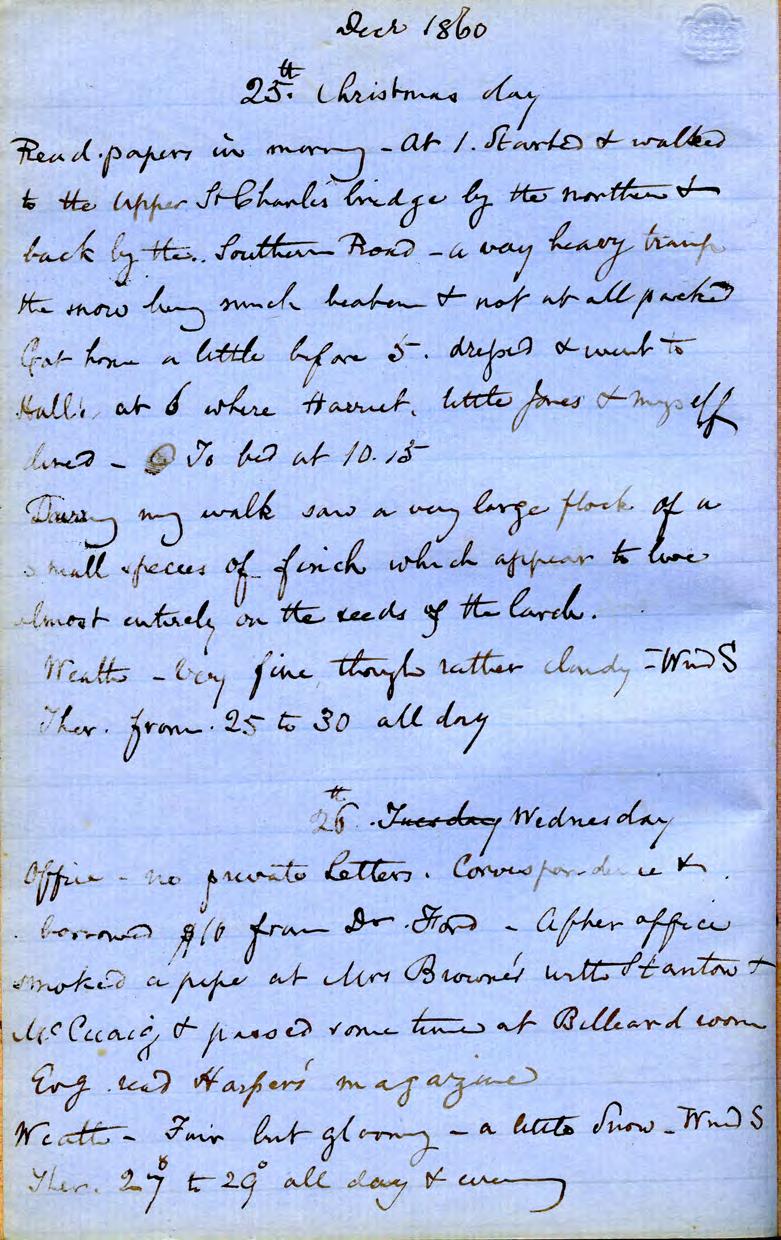 Decr 1860
25th. Christmas day
Read papers in morng - At 1. Started & walked
to the Upper St Charles bridge by the northern &
back by the Southern Road - a very heavy tramp
the snow being much beaten & not at all packed
Got home a little before 5. dressed & went to
Hall's at 6 where Harriet, little Jones & myself
dined - To bed at 10.15
During my walk saw a very large flock of a
small species of finch which appear to live
almost entirely on the seeds of the larch.
Weath - Very fine, though rather cloudy - Wind S
Ther. from 25 to 30 all day
26th. Tuesday Wednesday
Office - no private Letters. Correspondence &
borrowed $10 from Dr Ford - After office
smoked a pipe at Mrs Browne's with Stanton &
McCuaig & passed some time at Billiard room
Evg read Harper's magazine
Weath - Fair but gloomy - a little Snow - Wind S
Ther. 27° to 29° all day & eveng